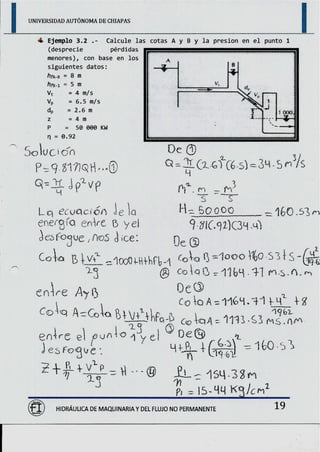 UNIVERSIDAD AUTÓNOMA DE CHIAPAS
Ejemplo 3.2 .- Calcule las cotas A y B y la presion en el punto 1
(desprecie pérdidas
menores), con base en los
siguientes datos:
hfA-B = 8 m
hfB-1 = 5 m
Vt = 4 m/s
Vp = 6.5 m/s
dp = 2.6 m
z = 4 m
P = 50 000 KW
η = 0.92
A
B
Vt
dp
Vp
z
1
1 000
Solución
P = 9.81 η Q H ... ①
Q = π/4 dp² vp
La ecuación de la
energía entre B y el
desfogue, nos dice:
Cota B + Vt²/2g = 1000 + H + hfB-1
②
entre A y B
Cota A = Cota B + Vt²/2g + hfA-B
③
entre el punto 1 y el
desfogue:
z + P1/η + V²p/2g = H ... ④
De ①
Q = π/4 (2.6)² (6.5) = 34.5 m³/s
m² . m/s = m³/s
H = 50000/9.81(.92)(34.4) = 160.53m
De ②
Cota B = 1000 + 160.53 + 5 - (4²/19.62)
Cota B = 1164.71 m.s.n.m.
De ③
Cota A = 1164.71 + 4²/19.62 + 8
Cota A = 1173.53 m.s.n.m.
De ④
4 + P1/η + (6.5)²/(19.62) = 160.53
P1/η = 154.38m
P1 = 15.44 Kg/cm²
HIDRÁULICA DE MAQUINARIA Y DEL FLUJO NO PERMANENTE
19